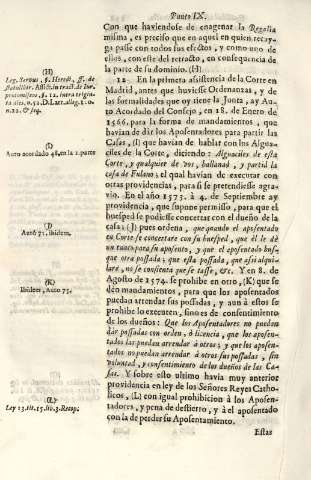 Punto IX.
Con que haviendose de enagenar la Regalìa
misma, es preciso que en aquel en quien recayga
passe con todos sus efectos, y como uno de
ellos, con este del retracto, en consequencia de
la parte de su dominio. (H)
12. En la primera assistencia de la Corte en
Madrid, antes que huviesse Ordenanzas, y de
las formalidades que oy tiene la Junta, ay Auto
Acordado del Consejo, en 18. de Enero de
1566. para la forma de mandamientos, que
havian de dàr los Aposentadores para partir las
Casas, (I) que havian de hablar con los Alguaciles
de la Corte, diciendo: Alguaciles de esta
Corte, y qualquier de vos, ballanad, y partid la
casa de Fulano: el qual havian de executar con
otras providencias, para si se pretendiesse agravio.
En el año 1573. à 4. de Septiembre ay
providencia, que supone permisso, para que el
huesped se podiesse concertar con el dueño de la
casa: (J) pues ordena, que quando el aposentado
en Corte se concertare con su huesped, que èl le dè
un tanto para su aposento, y que el aposentado busque
otra possada; que esta possada, que assi alquilare,
no se consienta que se tasse, &c. Y en 8. de
Agosto de 1574. se prohibe en otro, (K) que se
dèn mandamientos, para que los aposentados
puedan arrendar sus possadas, y aun à estos se
prohibe lo executen, sino es de consentimiento
de los dueños: Que los Aposentadores no puedan
dàr possadas con orden, ò licencia, que los aposentados
las puedan arrendar à otros; y que los aposentados
no puedan arrendar à otros sus possadas, sin
voluntad, y consentimiento de los dueños de las Casas.
Y sobre esto ultimo havia muy anterior
providencia en ley de los Señores Reyes Catholicos,
(L) con igual prohibicion à los Aposentadores,
y pena de destierro, y à el aposentado
con la de perder su Aposentamiento.
Estas
(H)
(I)
Auto acordado 48. en la 2. parte
(J)
Auto 71. ibidem.
(K)
Ibidem, Auto 75.
(L)
Ley 23. tit. 15. lib. 3. Recop.